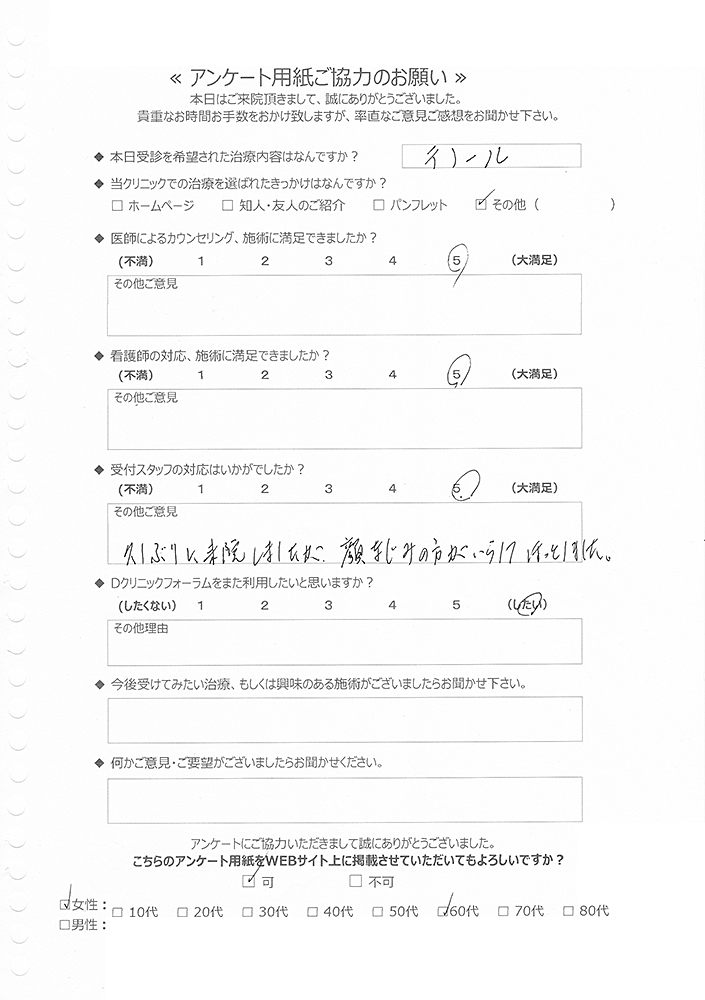 ≪ アンケート用紙ご協力のお願い ≫
本日はご来院頂きまして、誠にありがとうございました。
貴重なお時間お手数をおかけ致しますが、率直なご意見ご感想をお聞かせ下さい。
◆ 本日受診を希望された治療内容はなんですか？
◆ 当クリニックでの治療を選ばれたきっかけはなんですか？
□ ホームページ □ 知人・友人のご紹介 □ パンフレット ☑ その他（ ）
◆ 医師によるカウンセリング、施術に満足できましたか？
(不満) 1 2 3 4 5 (大満足)
その他ご意見
◆ 看護師の対応、施術に満足できましたか？
(不満) 1 2 3 4 5 (大満足)
その他ご意見
◆ 受付スタッフの対応はいかがでしたか？
(不満) 1 2 3 4 5 (大満足)
その他ご意見
久しぶりに来院しましたが、顔なじみの方がいらして ほっとしました。
◆ Dクリニックフォーラムをまた利用したいと思いますか？
(したくない) 1 2 3 4 5 (したい)
その他理由
◆ 今後受けてみたい治療、もしくは興味のある施術がございましたらお聞かせ下さい。
◆ 何かご意見・ご要望がございましたらお聞かせください。
アンケートにご協力いただきまして誠にありがとうございました。
こちらのアンケート用紙をWEBサイト上に掲載させていただいてもよろしいですか？
☑ 可 □ 不可
☑女性： □ 10代 □ 20代 □ 30代 □ 40代 □ 50代 ☑60代 □ 70代 □ 80代
□男性：